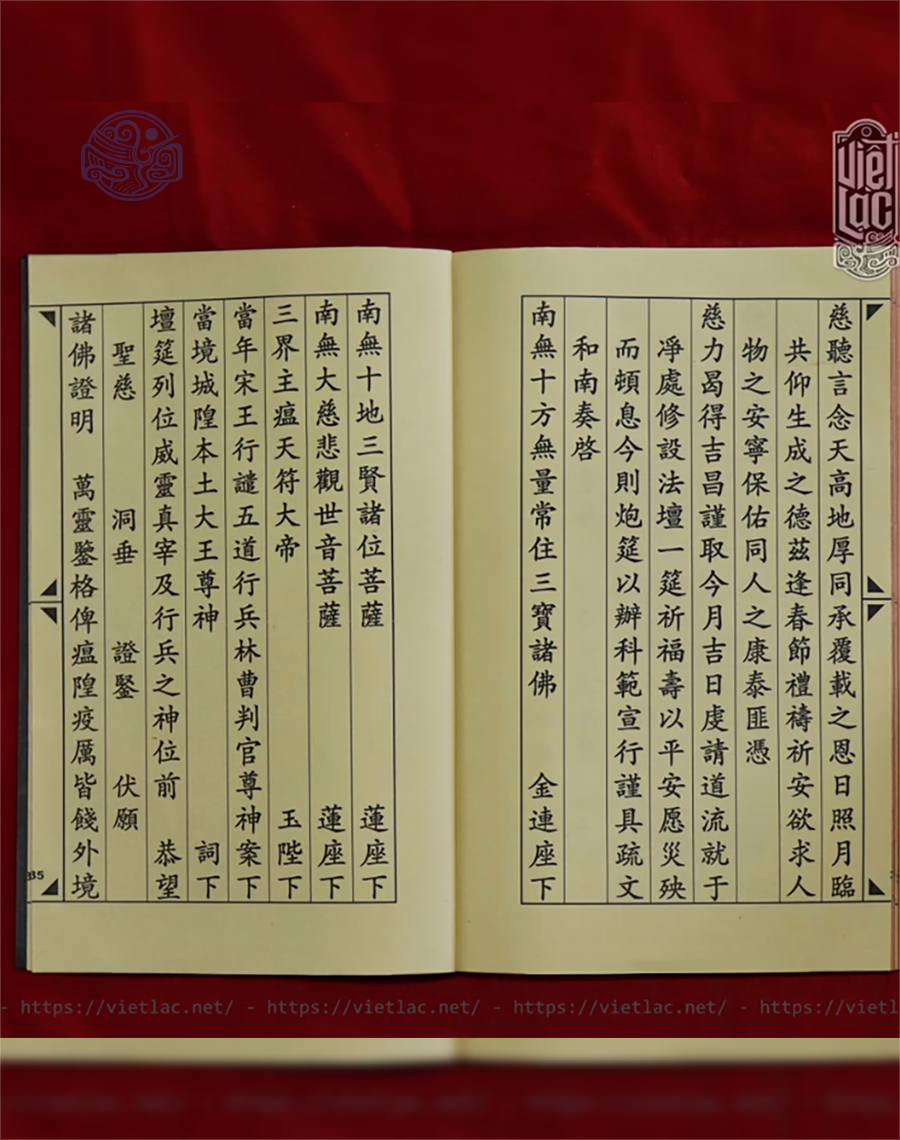 慈聽言念天高地厚同承覆載之恩日照月臨
共仰生成之德茲逢春節禮禱祈安欲求人
物之安寧保佑同人之康泰匪憑
慈力曷得吉昌謹取今月吉日虔請道流就于
凈處修設法壇一筵祈福壽以平安愿災殃
而頓息今則炮筵以辦科範宣行謹具疏文
和南奏啓
南無十方無量常住三寶諸佛 金連座下
南無十地三賢諸位菩薩 蓮座下
南無大慈悲觀世音菩薩 蓮座下
三界主瘟天符大帝 玉陛下
當年宋王行譴五道行兵林曹判官尊神案下
當境城隍本土大王尊神 詞下
壇筵列位威靈真宰及行兵之神位前 恭望
聖慈 洞垂 證鑒 伏願
諸佛證明 萬靈鑒格俾瘟隍疫厲皆餞外境
35
Việt Lạc
- https://vietlac.net/ - https://vietlac.net/ - https://vietlac.net/ - https://vietlac.net/